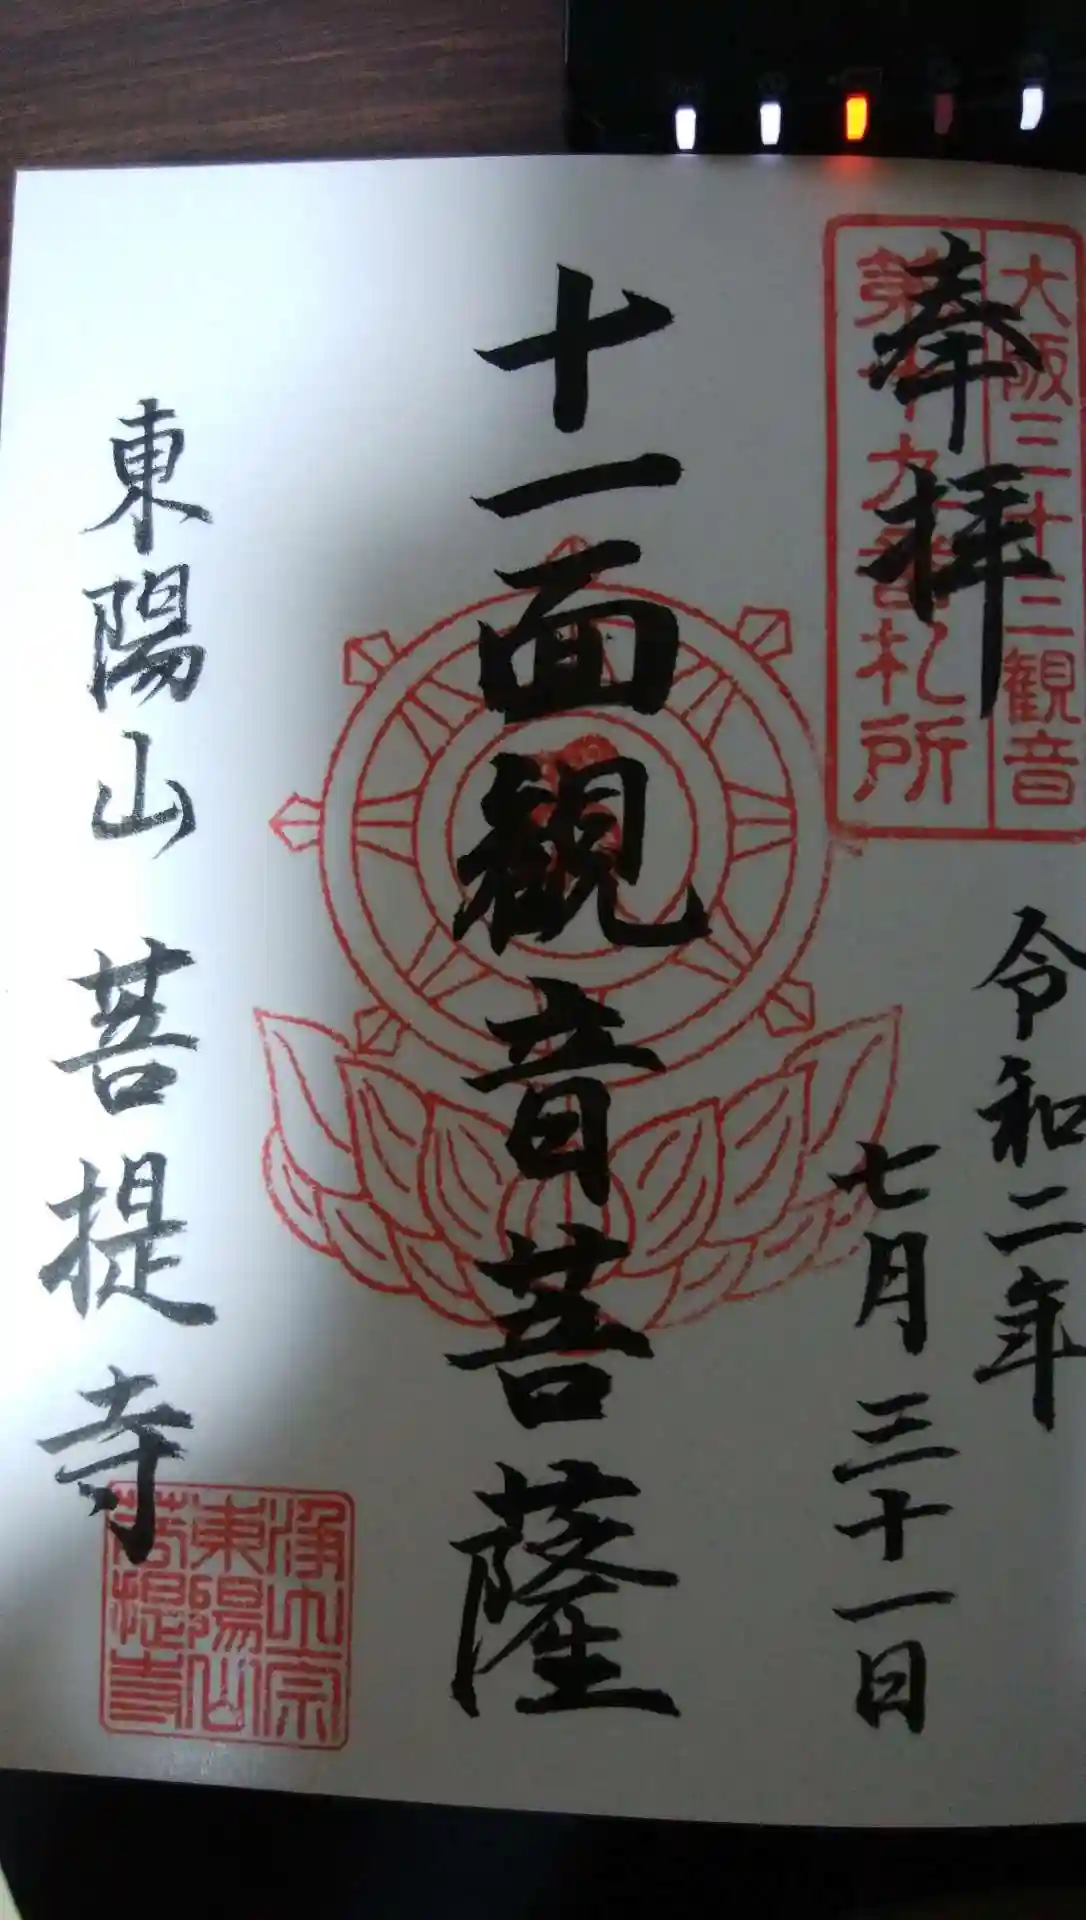 大阪三十三観音
第十九番札所
奉拝
令和二年
七月三十一日
十一面観音菩薩
東陽山 菩提寺
浄土宗
東陽山
菩提寺